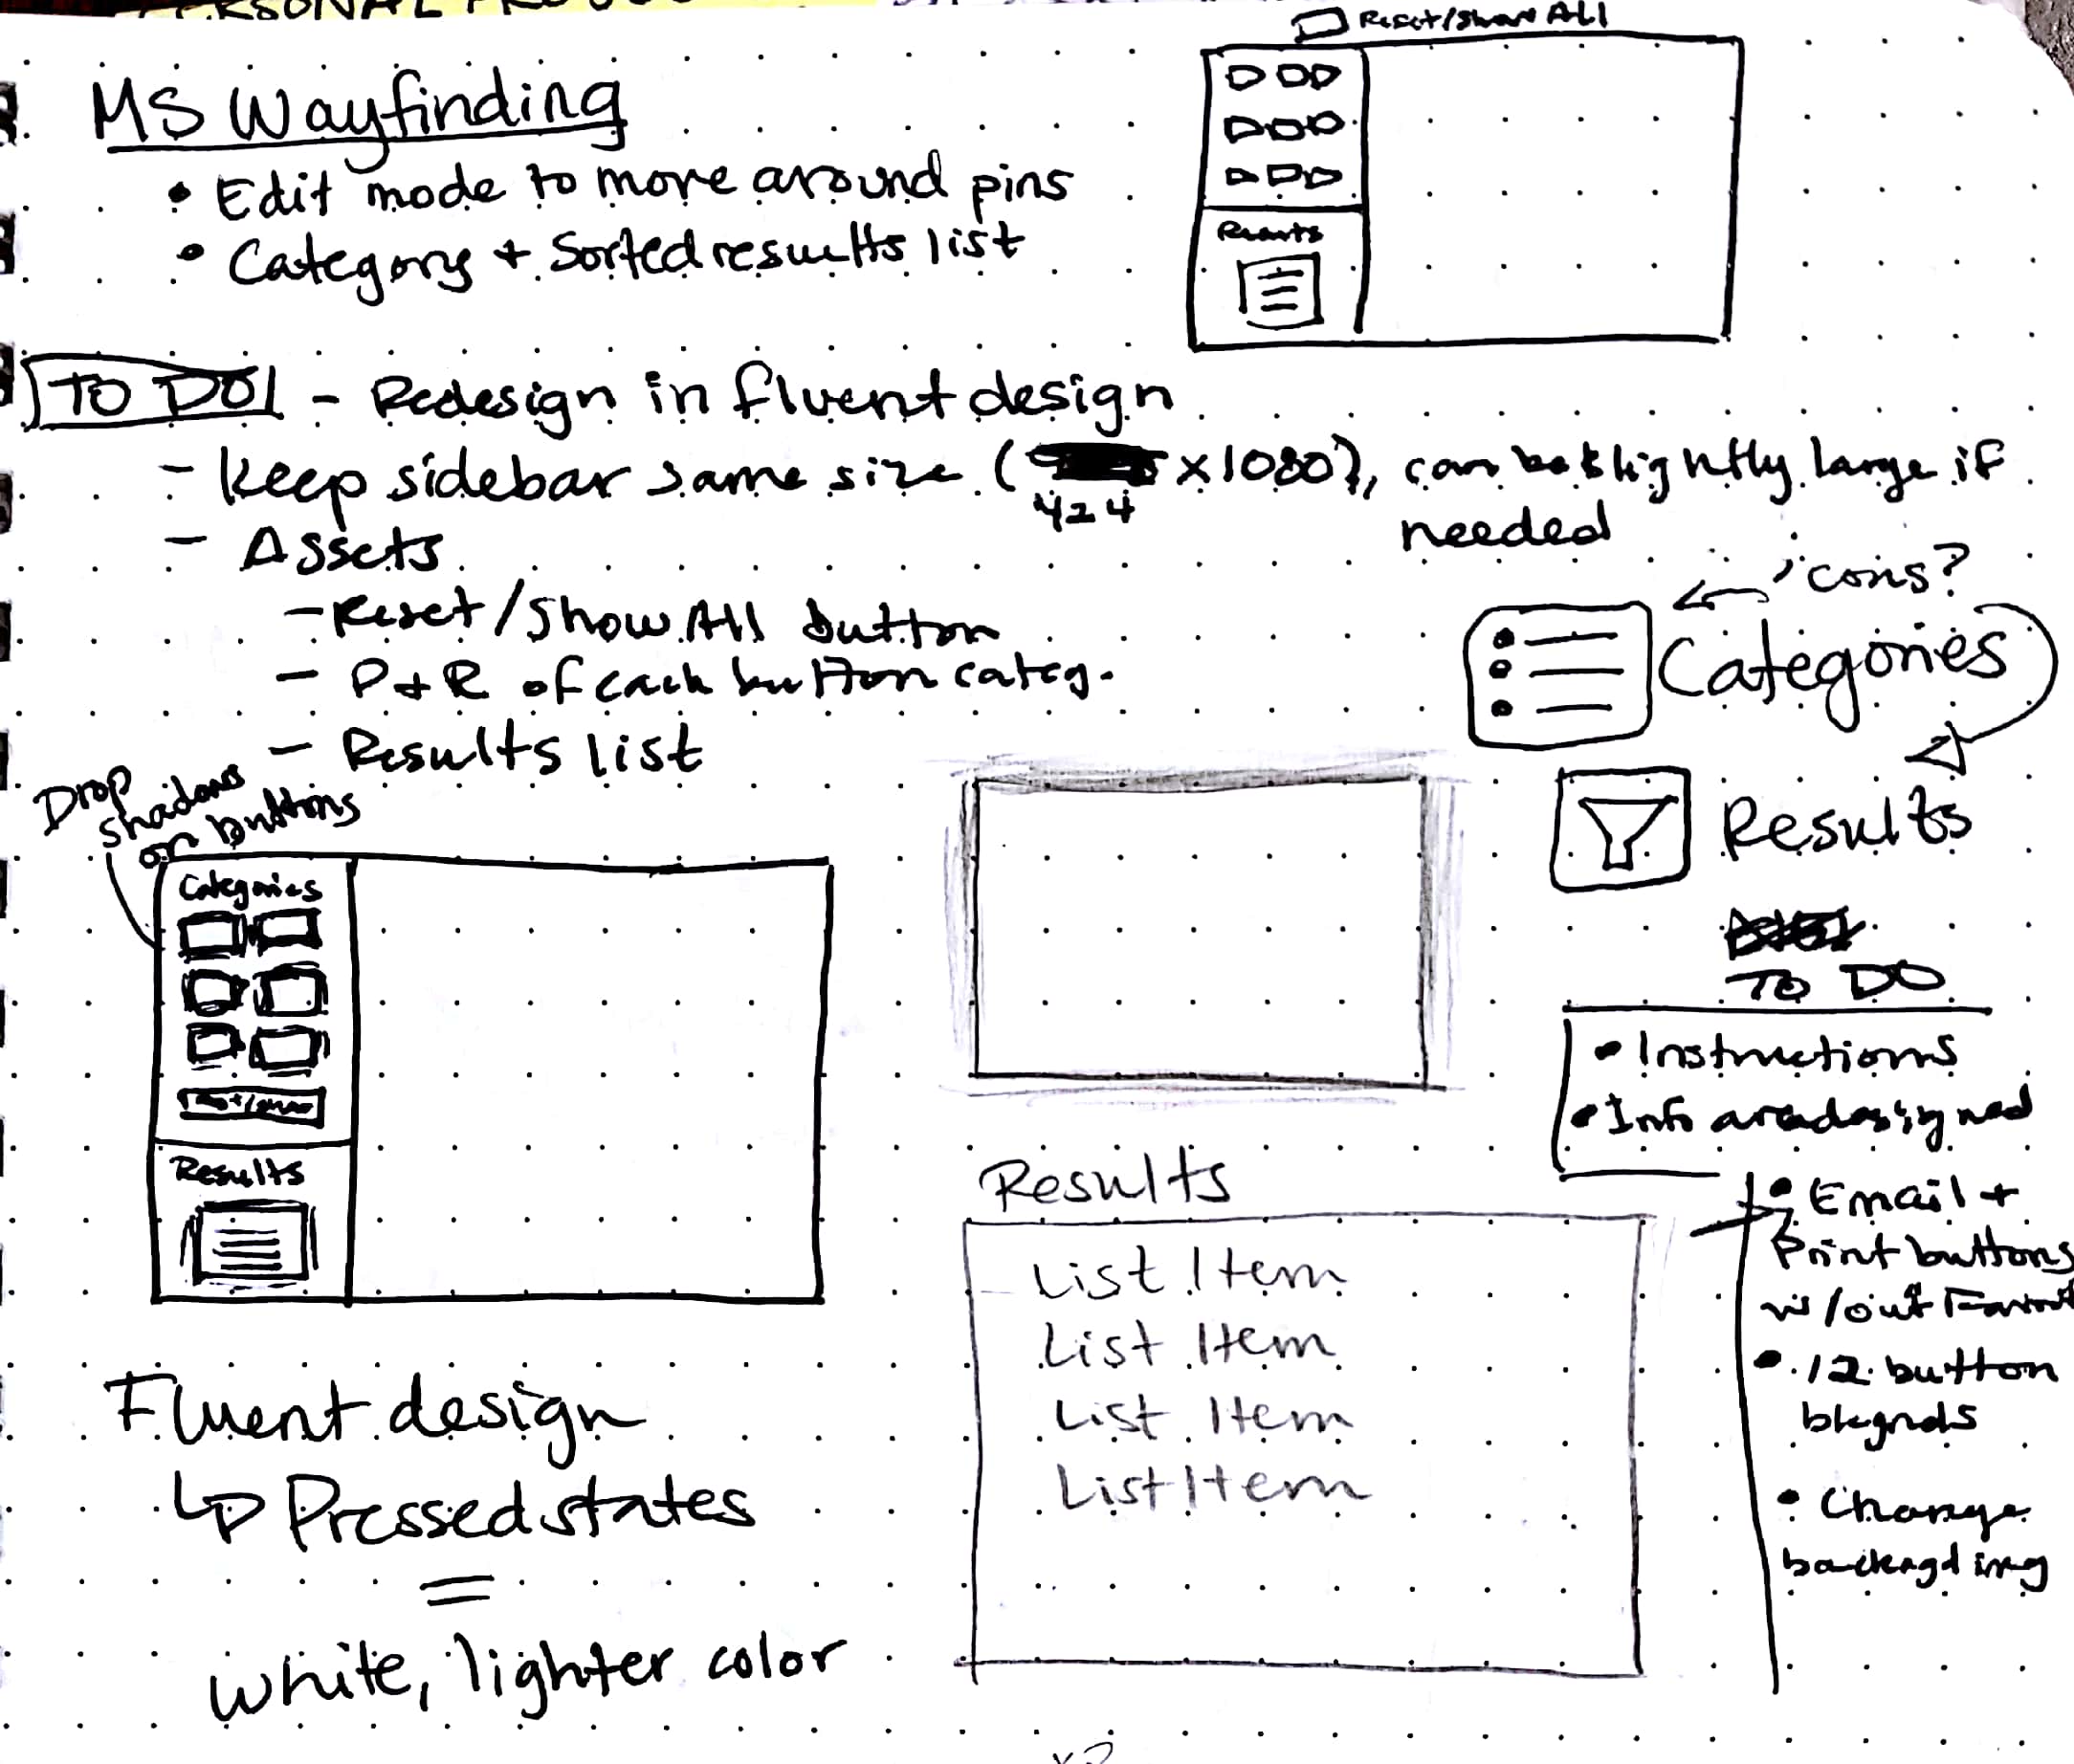 Reset/Show All
MS Wayfinding
• Edit mode to move around pins
• Category + Sorted results list
Results
TO DO!
- Redesign in fluent design
- Keep sidebar same size (424 x1080), can be slightly large if
needed
- Assets
- Reset/Show All button
- P + R of each button categ.
- Results list
icons?
Categories
Results
Drop
shadows
on buttons
Categories
Results
TO DO
• Instructions
• Info area designed
• Email +
Print buttons
w/out
• 12 button
bkgnds
• Change
backgd img
Results
List Item
List Item
List Item
List Item
Fluent design
↳ Pressed states
=
white, lighter color